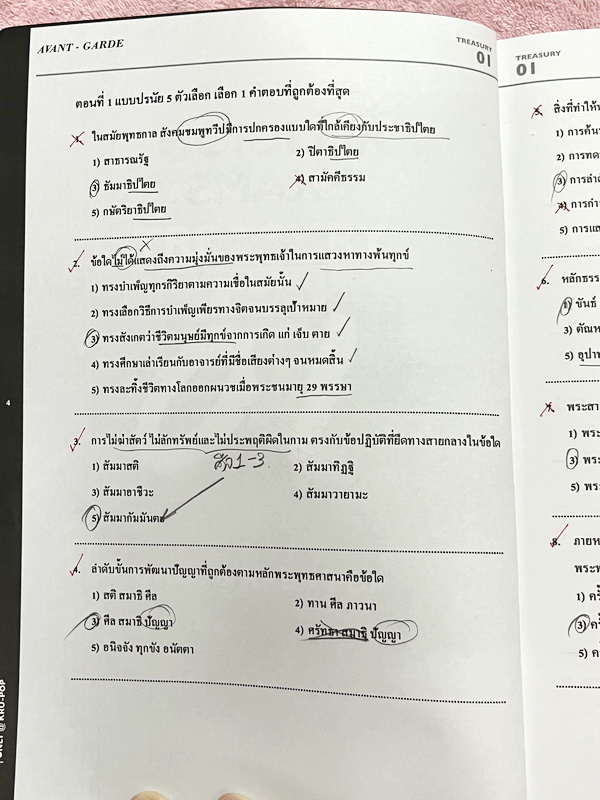 AVANT - GARDE
TREASURY
01
ตอนที่ 1 แบบปรนัย 5 ตัวเลือก เลือก 1 คำตอบที่ถูกต้องที่สุด
1. ในสมัยพุทธกาล สังคมชมพูทวีปมีการปกครองแบบใดที่ใกล้เคียงกับประชาธิปไตย
1) สาธารณรัฐ
2) ปิตาธิปไตย
3) ธัมมาธิปไตย
4) สามัคคีธรรม
5) กษัตริยาธิปไตย
2. ข้อใดไม่ได้แสดงถึงความมุ่งมั่นของพระพุทธเจ้าในการแสวงหาทางพ้นทุกข์
1) ทรงบำเพ็ญทุกรกิริยาตามความเชื่อในสมัยนั้น
2) ทรงเลือกวิธีการบำเพ็ญเพียรทางจิตจนบรรลุเป้าหมาย
3) ทรงสังเกตว่าชีวิตมนุษย์มีทุกข์จากการเกิด แก่ เจ็บ ตาย
4) ทรงศึกษาเล่าเรียนกับอาจารย์ที่มีชื่อเสียงต่างๆ จนหมดสิ้น
5) ทรงละทิ้งชีวิตทางโลกออกผนวชเมื่อพระชนมายุ 29 พรรษา
3. การไม่ฆ่าสัตว์ ไม่ลักทรัพย์และไม่ประพฤติผิดในกาม ตรงกับข้อปฏิบัติที่ยึดทางสายกลางในข้อใด
1) สัมมาสติ
ศีล 1-3
2) สัมมาทิฏฐิ
3) สัมมาอาชีวะ
4) สัมมาวายามะ
5) สัมมากัมมันตะ
4. ลำดับขั้นการพัฒนาปัญญาที่ถูกต้องตามหลักพระพุทธศาสนาคือข้อใด
1) สติ สมาธิ ศีล
2) ทาน ศีล ภาวนา
3) ศีล สมาธิ ปัญญา
4) ศรัทธา สมาธิ ปัญญา
5) อนิจจัง ทุกขัง อนัตตา
4
TREASURY
01
5. สิ่งที่ทำให้
1) การค้น
2) การทด
3) การลำ
4) การกำ
5) การแส
6. หลักธรร
1) ขันธ์
3) ตัณห
5) อุปา
7. พระสา
1) พระ
3) พระ
5) พระ
8. ภายห
พระพ
1) ครั้
3) ครั้
5) ค